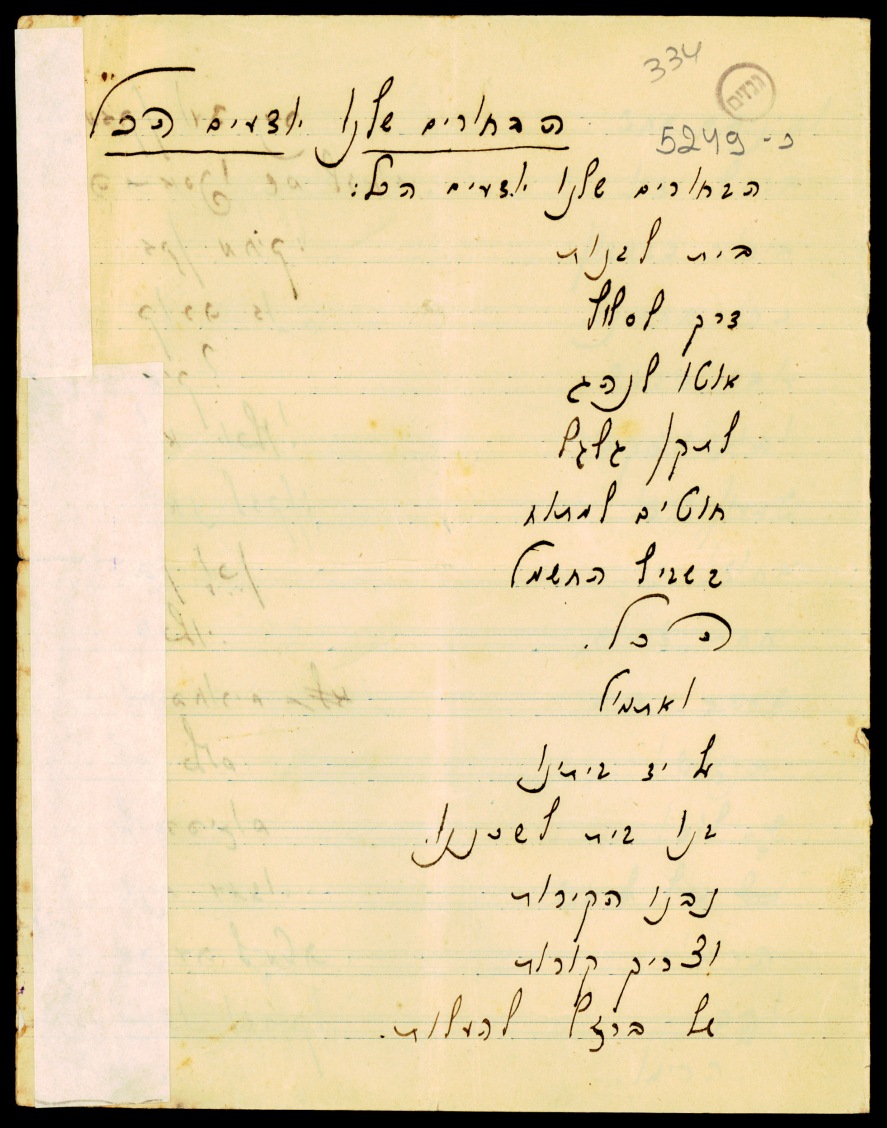 334
גנזים
כ - 5249
הבחורים שלנו יודעים הכל
הבחורים שלנו יודעים הכל:
בית לבנות
דרך לסלול
אוטו לנהג
לתקן גלגל
חוטים למתוח
בשביל החשמל
הכל.
ואתמול
על יד ביתינו
בנו בית לשכננו.
נבנו הקירות
וצריך קורות
של ברזל להעלות.